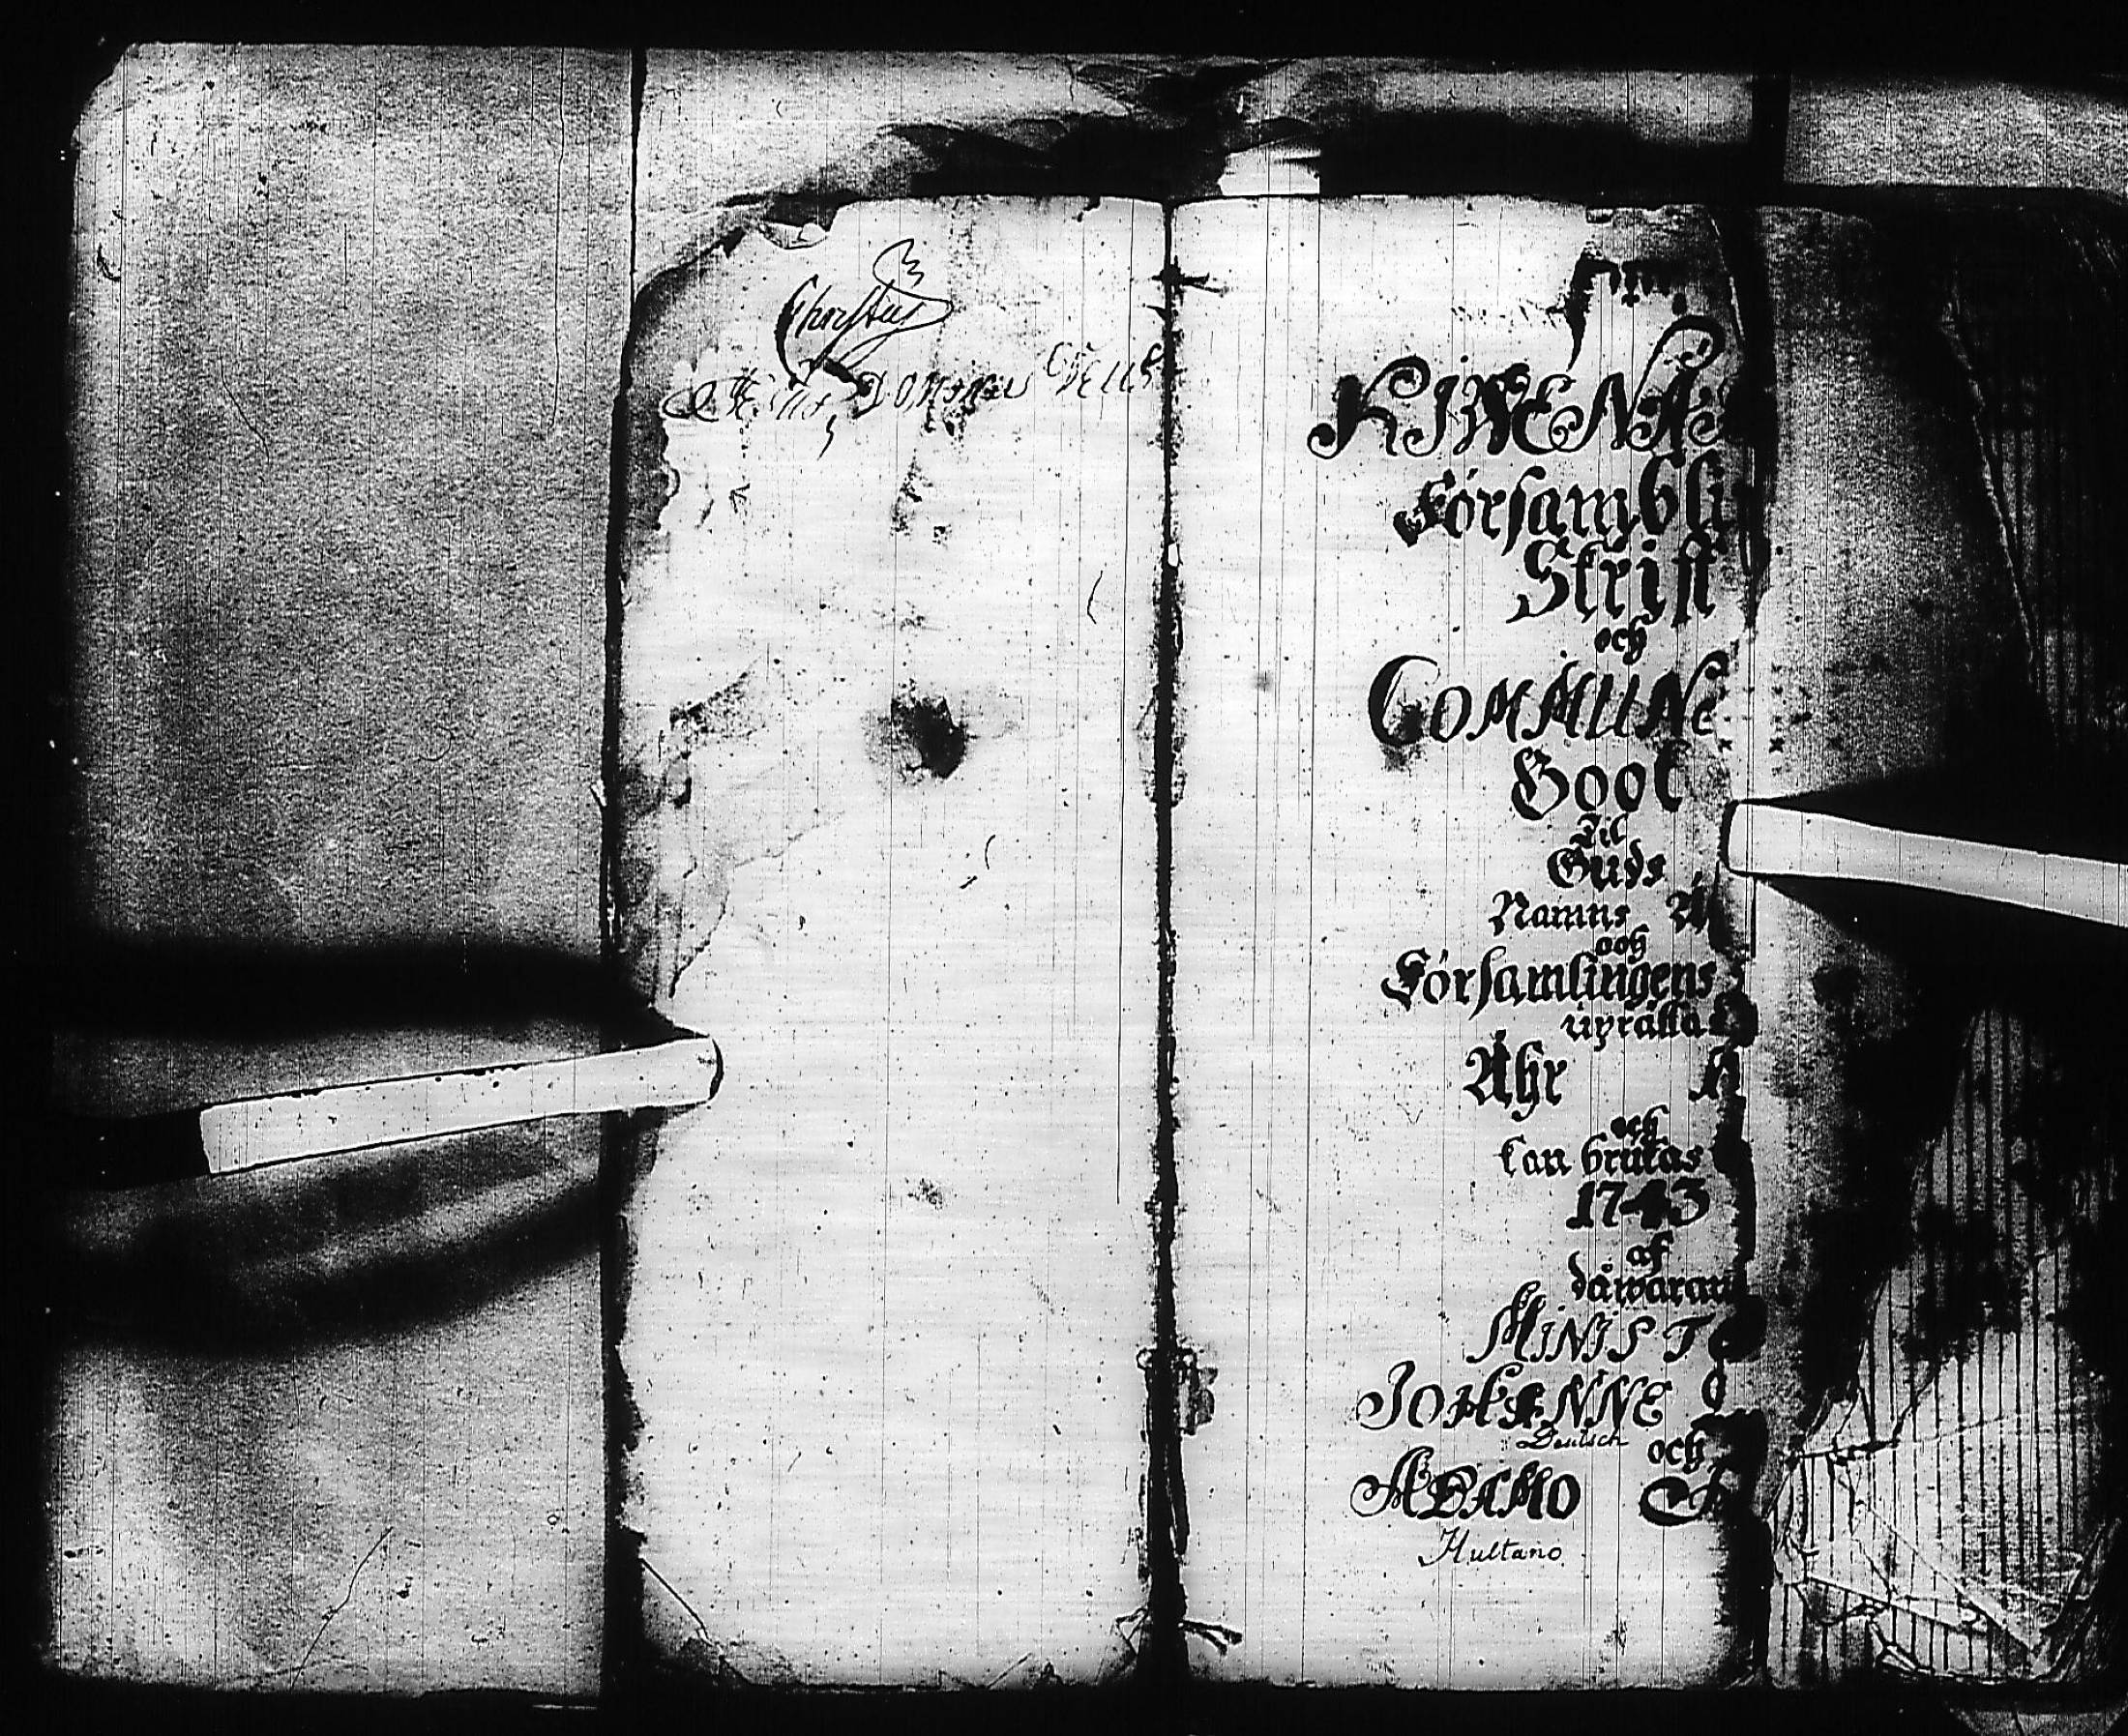 Dominus Deus
KIWENÅ
Försambli
Skrifft
och
COMMUNe
Book
Til
Guds
Namns Ä
och
Församlingens
uprätta
Åhr
och
kan brukas
1743
af
dåwaran
MINIST
JOHANNE
Deutsch och
ADAMO
Hultano